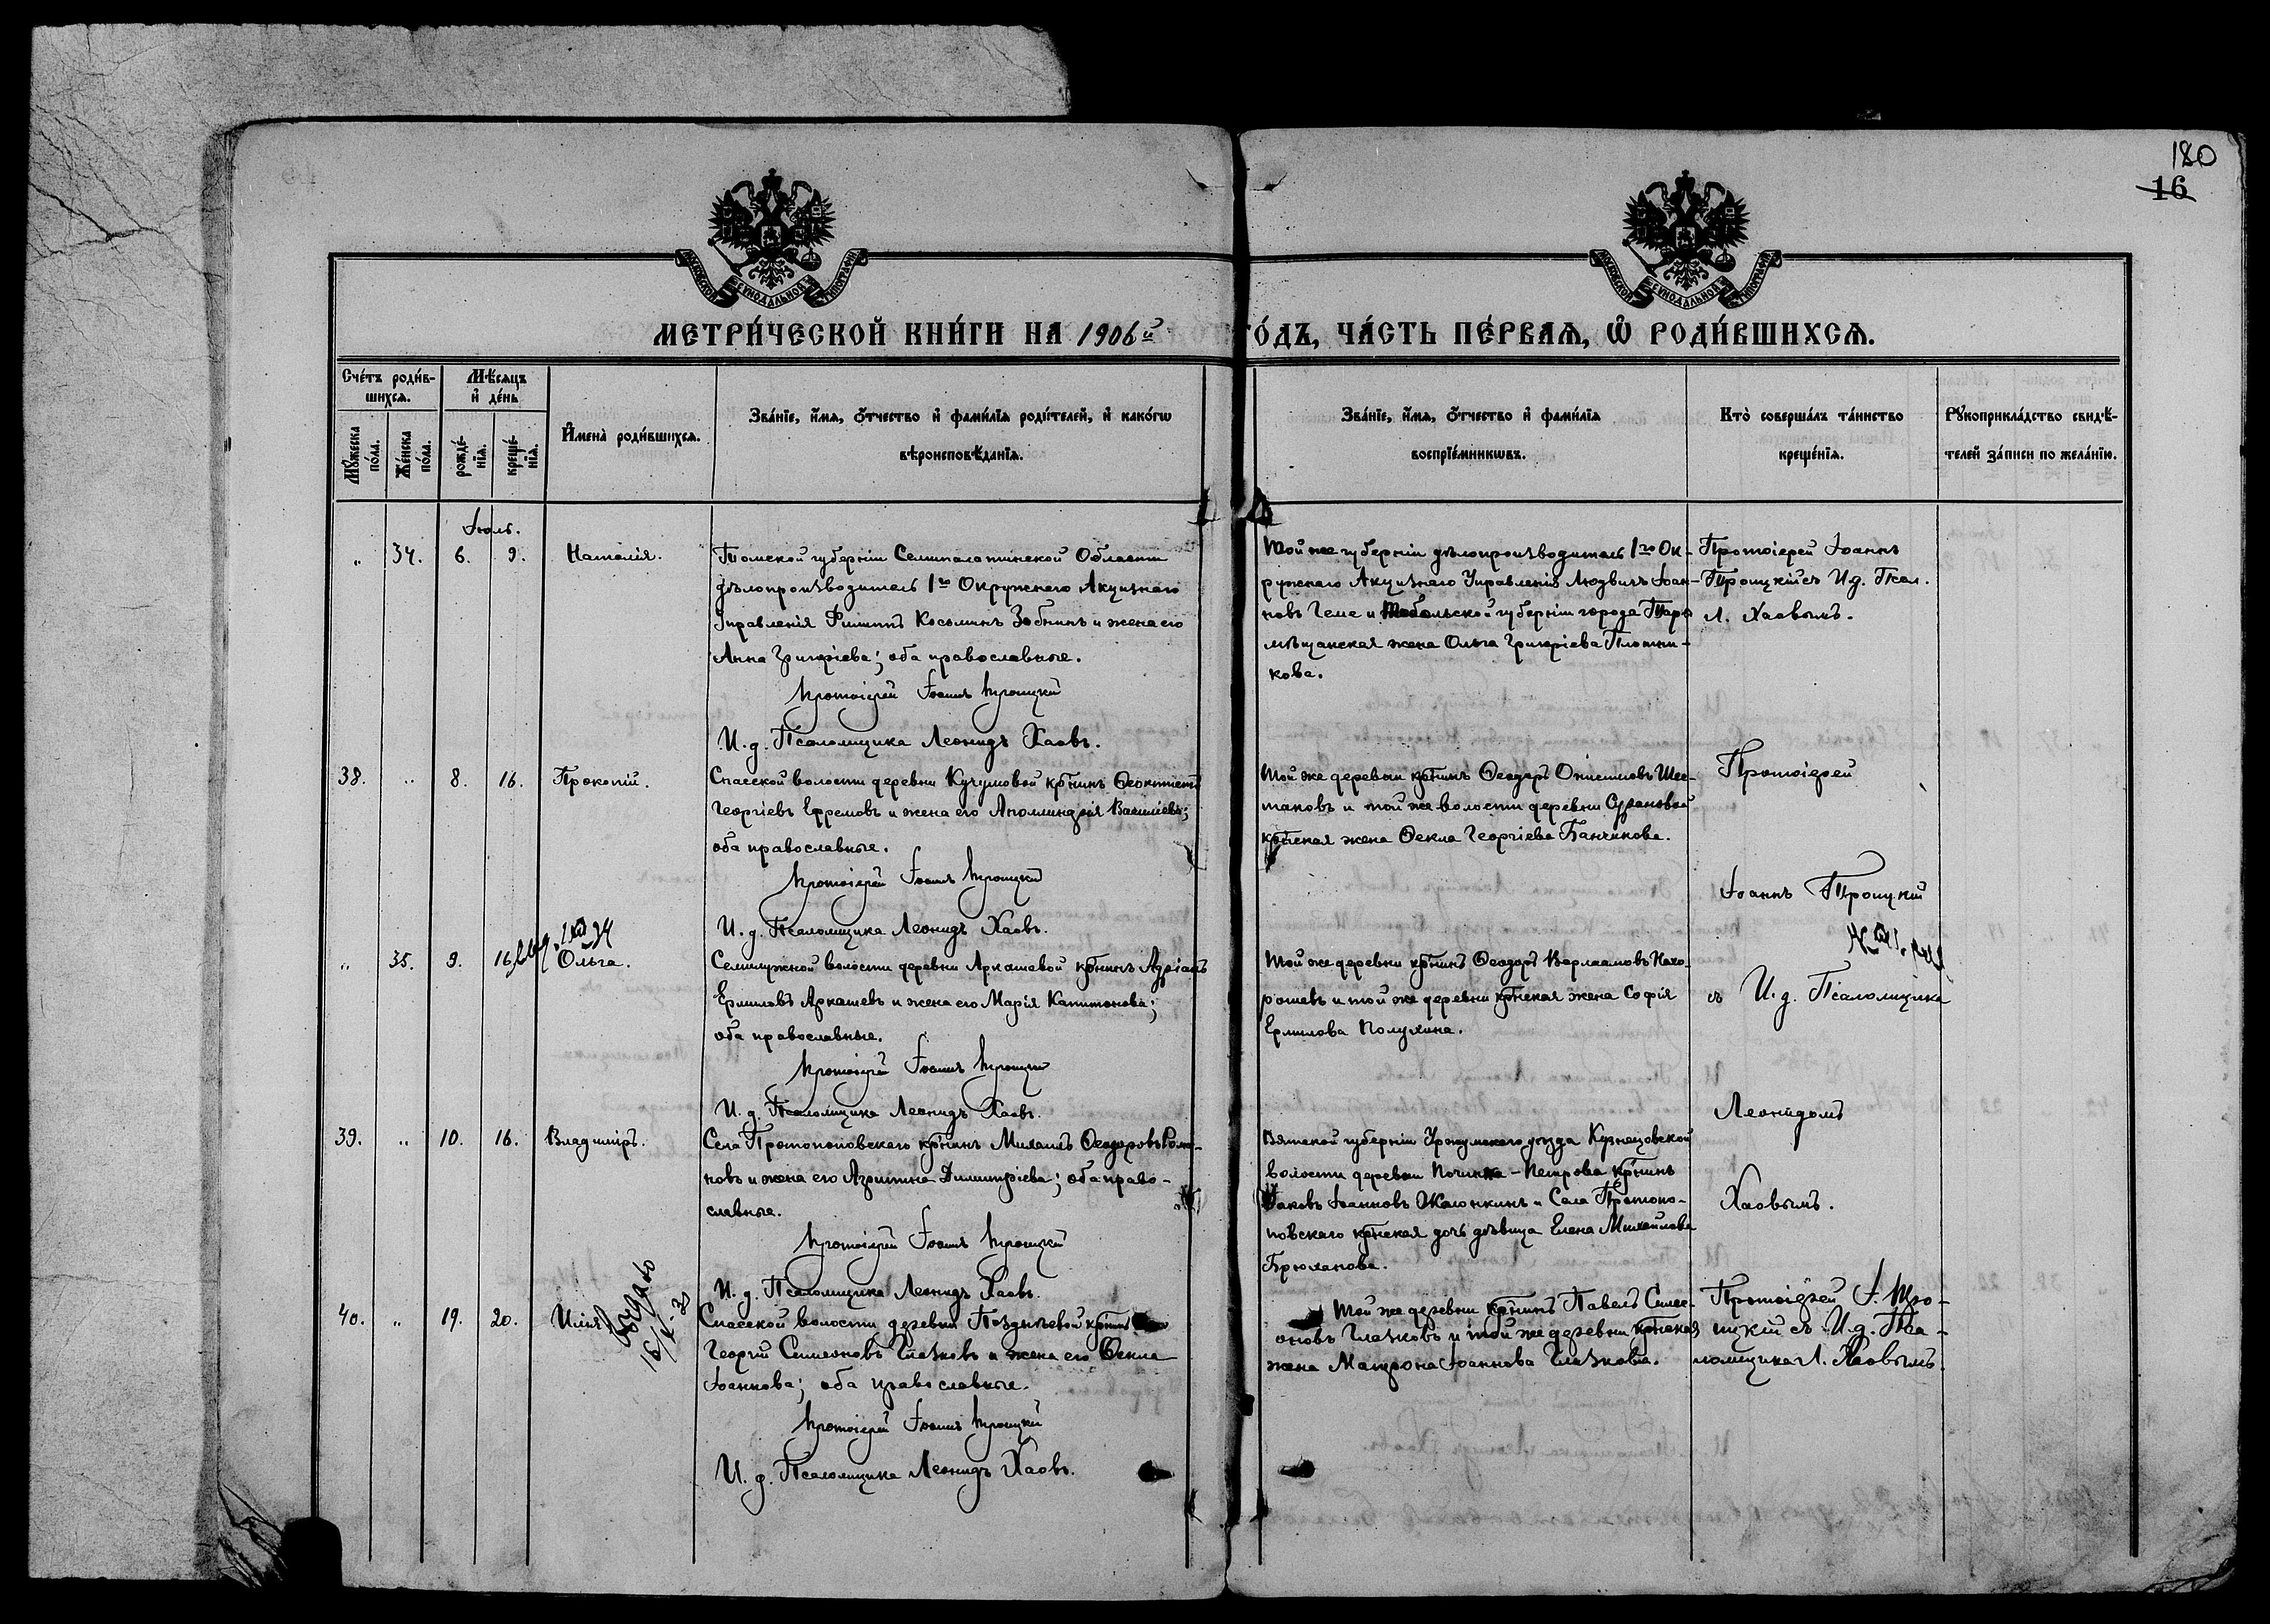 180
16
МОСКОВСКОЙ СѴНОДАЛЬНОЙ ТИПОГРАФІИ
МОСКОВСКОЙ СѴНОДАЛЬНОЙ ТИПОГРАФІИ
МЕТРИ́ЧЕСКОЙ КНИ́ГИ НА 1906й ГО́ДЪ, ЧА́СТЬ ПЕ́РВАѦ, Ѡ҆ РОДИ́ВШИХСѦ.
Сче́тъ роди́в-
шихсѧ.
Мѣ́сѧцъ
и҆ де́нь
Мꙋ́жеска по́ла.
Же́нска по́ла.
рожде́-
нїѧ.
креще́-
нїѧ.
И҆мена̀ роди́вшихсѧ.
Зва́нїе, и҆́мѧ, ѻ҆́тчество и҆ фами́лїѧ роди́телей, и҆ како́гѡ
вѣроисповѣ́данїѧ.
Зва́нїе, и҆́мѧ, ѻ҆́тчество и҆ фами́лїѧ
воспрїе́мникѡвъ.
Кто̀ соверша́лъ та́инство
креще́нїѧ.
Рꙋкоприкла́дство свидѣ́-
телей за́писи по жела́нїю.
Іюль.
„ 34. 6. 9. Наталія.
Томской губерніи Семипалатинской Области
дѣлопроизводитель 1го Окружнаго Акцизнаго
Управленія Филиппъ Косьминъ Зобнинъ и жена его
Анна Григоріева; оба православные.
Протоіерей Іоаннъ Троицкій
И. д. Псаломщика Леонидъ Хаовъ.
Той же губерніи дѣлопроизводитель 1го Ок-
ружнаго Акцизнаго Управленія Людвигъ Іоан-
новъ Геме и Тобольской губерніи города Тары
мѣщанская жена Ольга Григоріева Плотни-
кова.
Протоіерей Іоаннъ
Троицкій съ И. д. Псал.
Л. Хаовымъ.
38. „ 8. 16. Прокопій.
Спасской волости деревни Кучумовой кр̃нинъ Ѳеоктистъ
Георгіевъ Ефремовъ и жена его Аполлинарія Василіева;
оба православные.
Протоіерей Іоаннъ Троицкій
И. д. Псаломщика Леонидъ Хаовъ.
Той же деревни кр̃нинъ Ѳеодоръ Онисимовъ Шес-
таковъ и той же волости деревни
кр̃нская жена Ѳекла Георгіева Банчикова.
Протоіерей
Іоаннъ Троицкій
„ 35. 9. 16. Ольга.
Семилужной волости деревни Аркашевой кр̃нинъ Адріанъ
Ермиловъ Аркашевъ и жена его Марія Капитонова;
оба православные.
Протоіерей Іоаннъ Троицкій
И. д. Псаломщика Леонидъ Хаовъ.
Той же деревни кр̃нинъ Ѳеодоръ Варлаамовъ Нахо-
рошевъ и той же деревни кр̃нская жена Софія
Ермилова Полухина.
съ И. д. Псаломщика
Леонидомъ
39. „ 10. 16. Владиміръ.
Села Протопоповскаго кр̃нинъ Михаилъ Ѳеодоровъ Рома-
новъ и жена его Агриппина Димитріева; оба право-
славные.
Протоіерей Іоаннъ Троицкій
И. д. Псаломщика Леонидъ Хаовъ.
Вятской губерніи Уржумскаго уѣзда Кузнецовской
волости деревни Починка-Петрова кр̃нинъ
Іаковъ Іоанновъ Жалонкинъ и Села Протопо-
повскаго кр̃нская дочь дѣвица Елена Михаилова
Брюханова.
Хаовымъ.
40. „ 19. 20. Илія
Выдано
Спасской волости деревни Поздѣевой кр̃нинъ
Георгій Симеоновъ Глазковъ и жена его Ѳекла
Іоаннова; оба православные.
Протоіерей Іоаннъ Троицкій
И. д. Псаломщика Леонидъ Хаовъ.
Той же деревни кр̃нинъ Павелъ Симе-
оновъ Глазковъ и той же деревни кр̃нская
жена Матрона Іоаннова Глазкова.
Протоіерей І. Тро-
ицкій съ И. д. Пса-
ломщика Л. Хаовымъ.